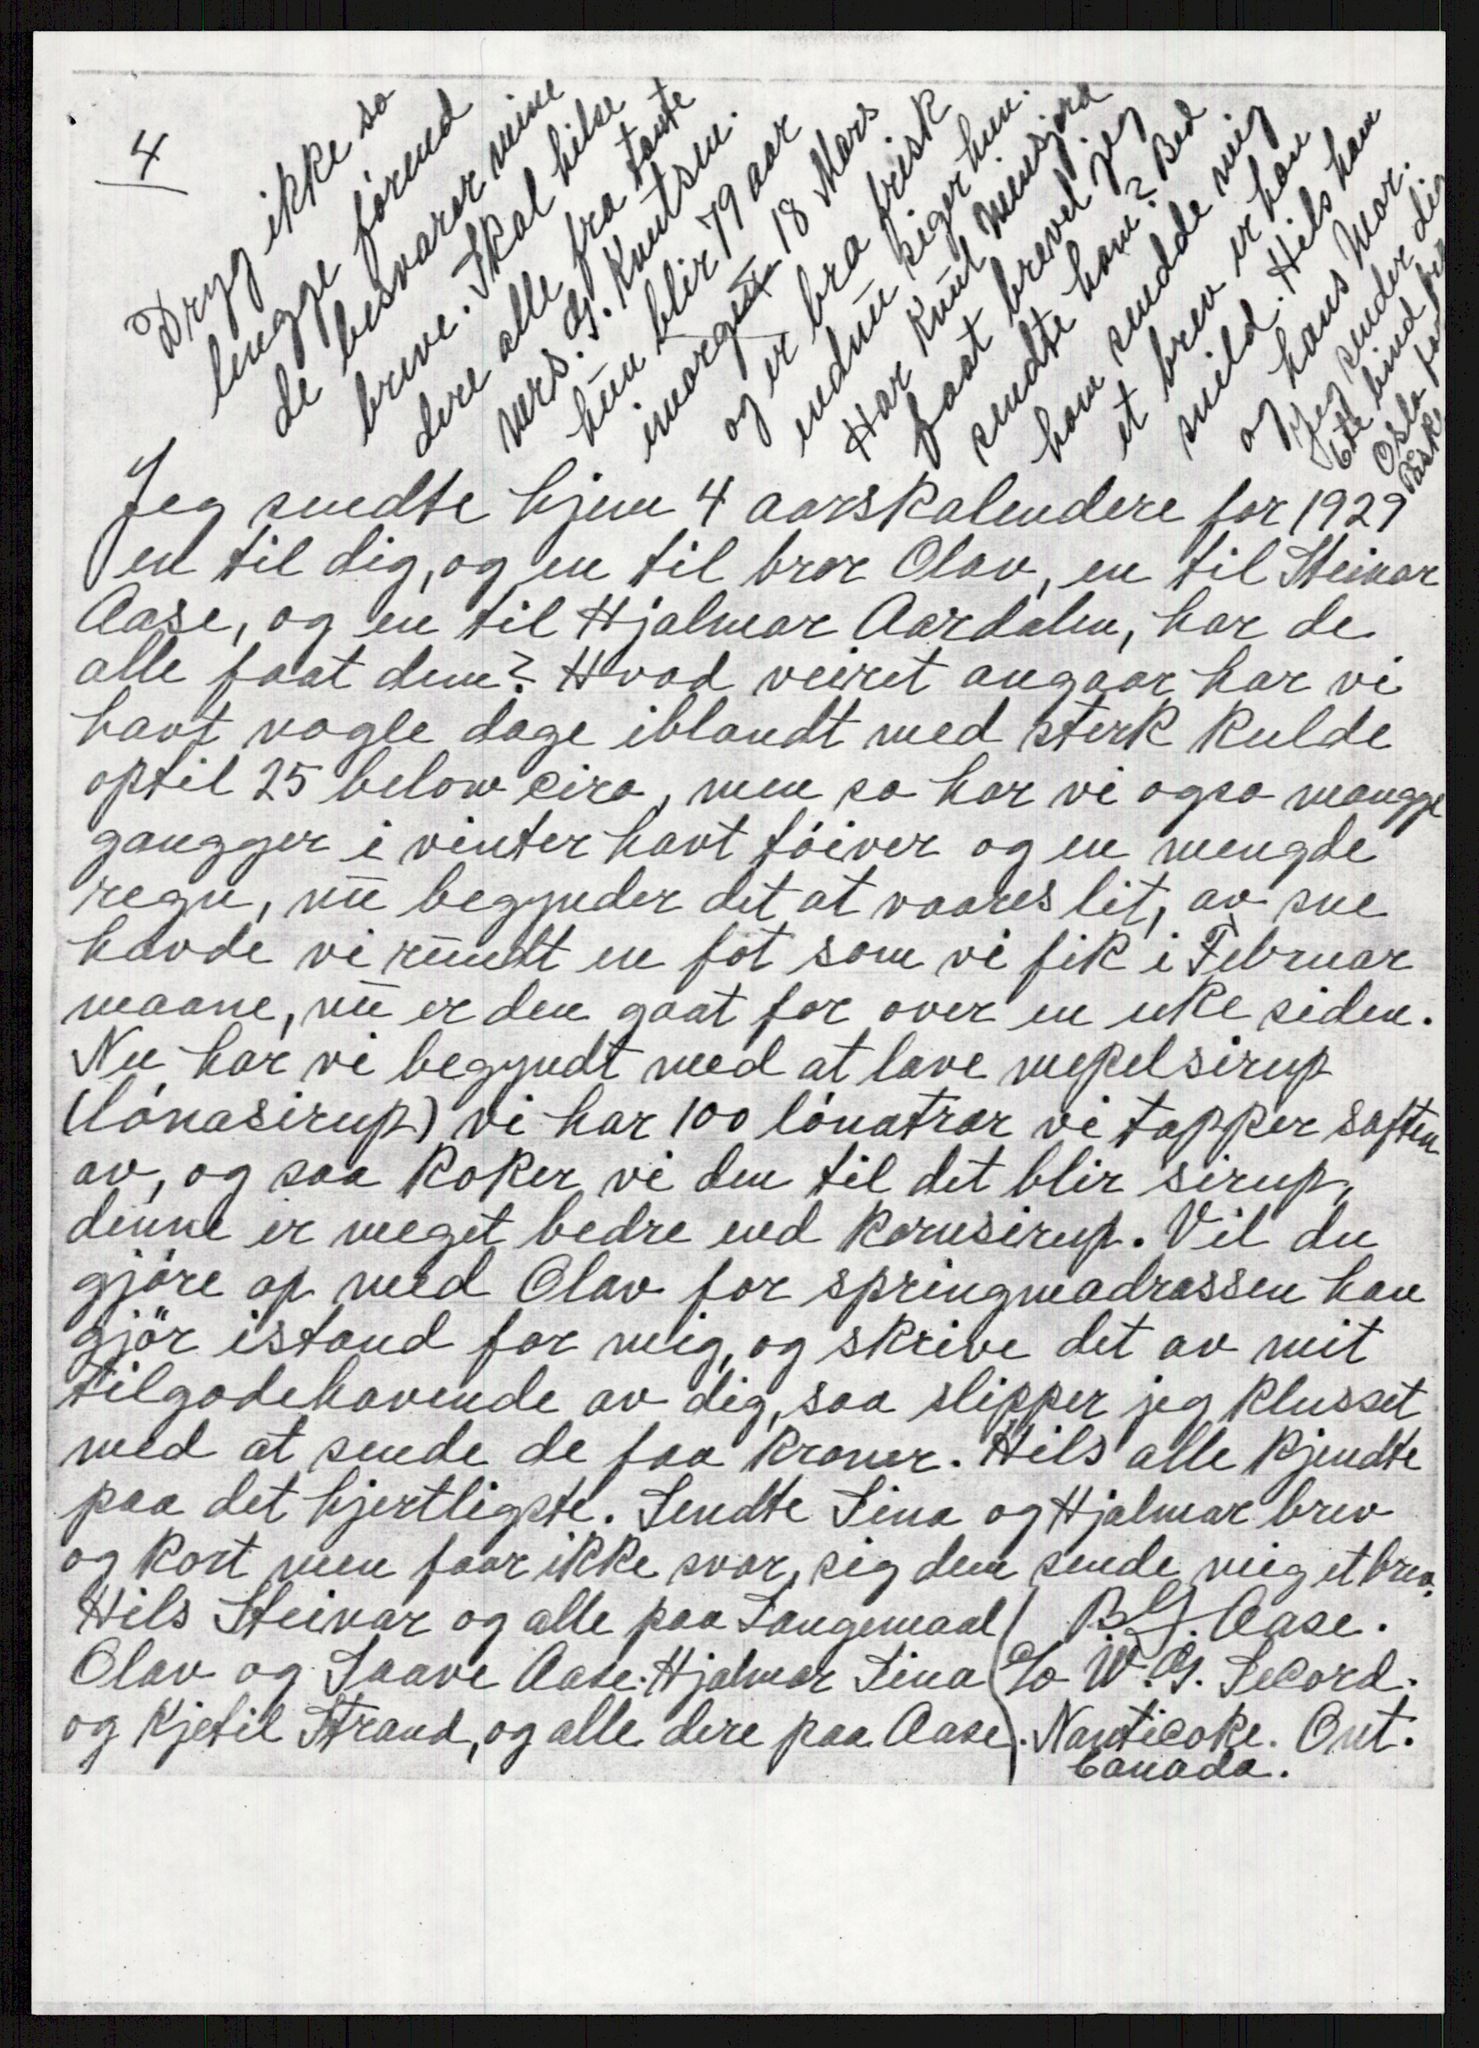 4
Dryg ikke so
lengge førend
de besvarer mine
breve. Skal hilse
dere alle fra tante
Mrs. G. Knutsen.
hun blir 79 aar
imorgen 18 Mars
og er bra frisk
endnu siger hun.
Har Knut
faat brevet jeg
sendte ham? Bed
ham sendde mig
et brev er han
snild. Hils ham
og hans Mor.
Jeg sender dig
Ete bind
Oslo
Jeg sendte hjem 4 aarskalendere for 1929
en til dig, og en til bror Olav, en til Steinar
Aase, og en til Hjalmar Aardalen, har de
alle faat dem? Hvad veiret angaar har vi
havt nogle dage iblandt med sterk kulde
optil 25 below ciro, men so har vi ogso mangge
gangger i vinter havt føiver og en mengde
regn, nu begynder det at vaares lit, av sne
havde vi rundt en fot som vi fik i Februar
maane, nu er den gaat for over en uke siden.
Nu har vi begyndt med at lave mepelsirup
(lønasirup) vi har 100 lønatrær vi tapper saften
av, og saa koker vi den til det blir sirup,
denne er meget bedre end kornsirup. Vil du
gjøre op med Olav for springmadrassen han
gjør istand for mig, og skrive det av mit
tilgodehavende av dig, saa slipper jeg klusset
med at sende de faa kroner. Hils alle kjendte
paa det hjertligste. Sendte Sina og Hjalmar brev
og kort men faar ikke svar, sig dem sende mig et brev.
Hils Steinar og alle paa Langemaal
Olav og Taave Aase. Hjalmar Sina
og Kjetil Strand, og alle dere paa Aase.
B.G. Aase.
c/o W. G. Secord.
Nanticoke. Ont.
Canada.